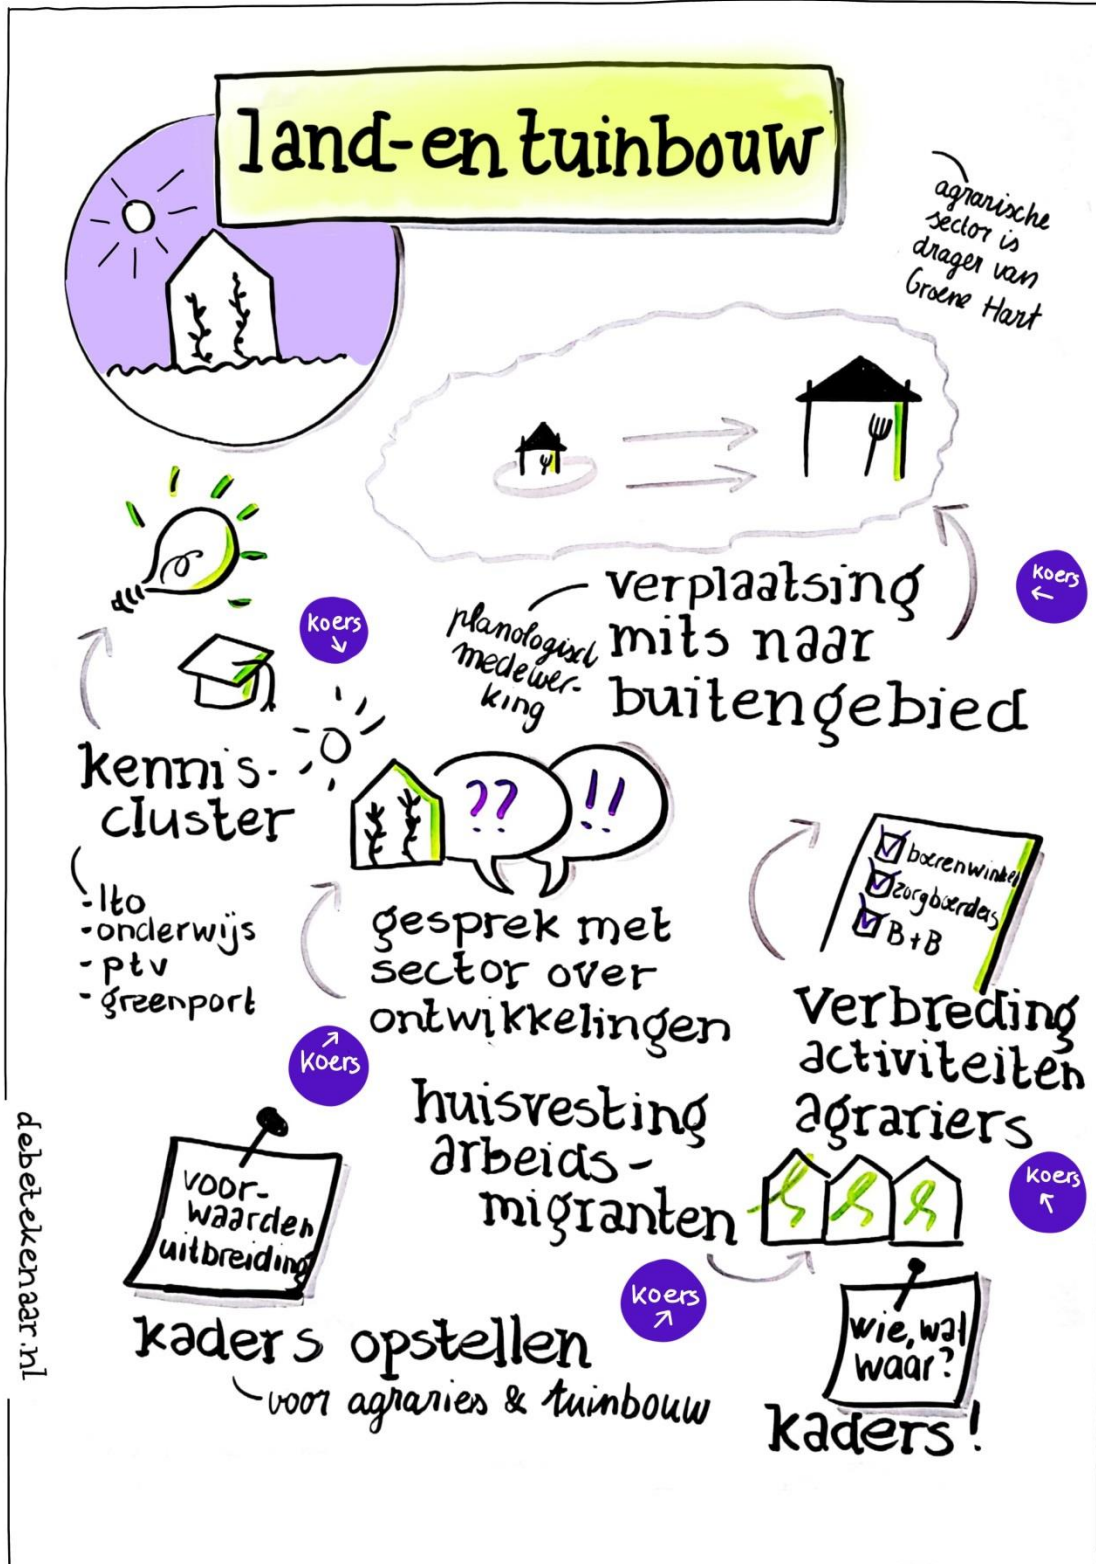 land-en tuinbouw
agrarische
sector is
drager van
Groene Hart
koers
verplaatsing
mits naar
buitengebied
planologisch
medewer-
king
koers
kennis-
cluster
-lto
-onderwijs
-ptv
-greenport
??
!!
gesprek met
sector over
ontwikkelingen
koers
boerenwinkel
zorgboerderij
B+B
verbreding
activiteiten
agrariers
koers
huisvesting
arbeids-
migranten
koers
voor-
waarden
uitbreiding
kaders opstellen
voor agraries & tuinbouw
wie, wat
waar?
kaders!
debetekenaar.nl